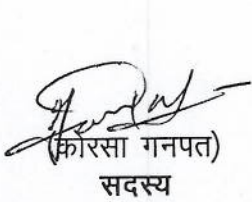 (कोरसा गनपत)
सदस्य